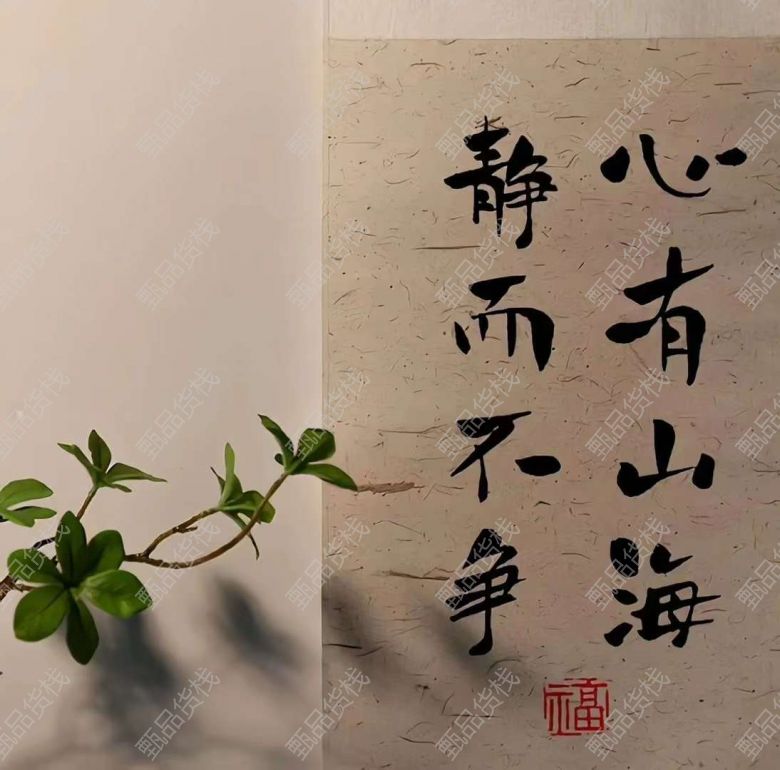 心有山海
静而不争
福
甄品货栈